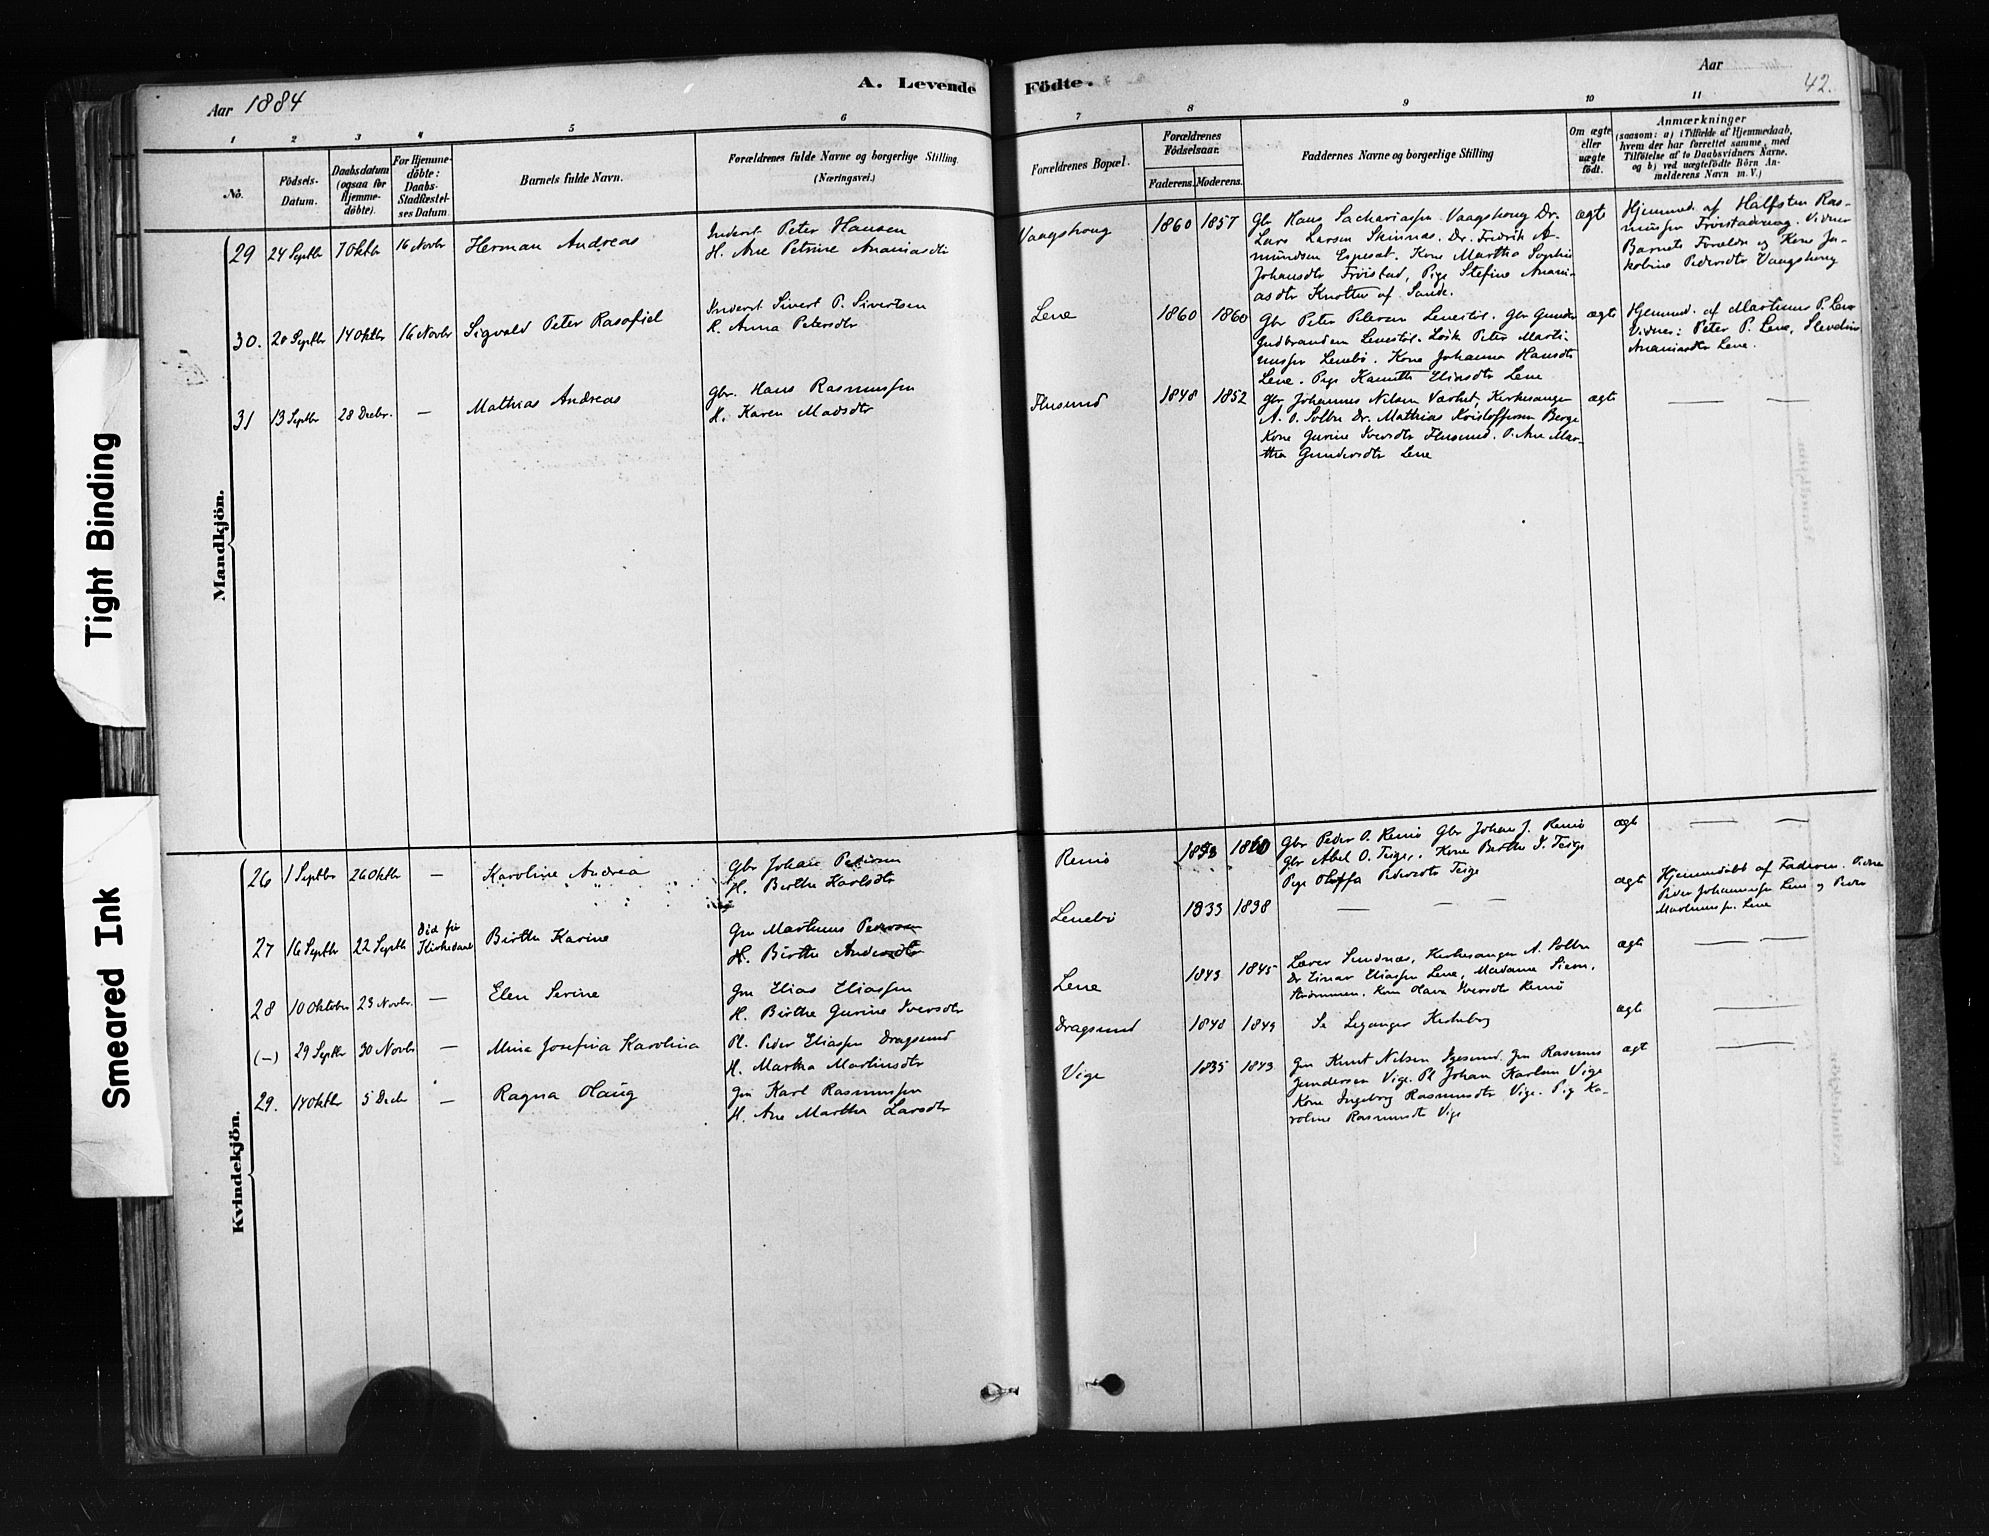 Tight Binding
Smeared Ink
Aar 1884
A. Levende Födte.
Aar
42.
1 2 3 4 5 6 7 8 9 10 11
No.
Födsels-
Datum.
Daabsdatum
(ogsaa for
Hjemme-
döbte).
For Hjemme-
döbte:
Daabs-
Stadfæstel-
ses Datum
Barnets fulde Navn.
Forældrenes fulde Navne og borgerlige Stilling
(Næringsvei.)
Forældrenes Bopæl.
Forældrenes
Födselsaar.
Faderens. Moderens.
Faddernes Navne og borgerlige Stilling
Om ægte
eller
uægte
födt.
Anmærkninger
(saasom: a) i Tilfælde af Hjemmedaab,
hvem der har forrettet samme, med
Tilföielse af to Daabsvidners Navne,
og b) ved uægtefödte Börn An-
melderens Navn m. V.)
Mandkjön.
29 24 Septbr 7 Oktbr 16 Novbr Herman Andreas
Inderst Peter Hansen
H. Ane Petrine Ananiasdtr
Vaagshoug 1860 1857
Gbr Hans Sachariassen Vaagshoug Dr.
Lars Larsen Skinnes. Dr. Fredrik A-
mundsen Espesæt. Kone Martha Sophie
Johansdtr Fröistad, Pige Stefine Anani-
asdtr Knotten af Sande.
ægte
Hjemmed. af Halfsten Ras-
mussen Fröistadvaag. Vidner
Barnets Forældre og Kone Ja-
kobine Pedersdtr Vaagshoug
30. 20 Septbr 14 Oktbr 16 Novbr Sigvald Peter Rasofiel
Inderst Sivert P. Sivertsen
K. Anna Petersdtr
Lene 1860 1860
Gbr Peter Petersen Lenestöl. Gbr Gunder
Gudbrandsen Lenestöl. Lösk Peter Marti-
nussen Lenebö. Kone Johanna Hansdtr
Lene. Pige Kanutte Eliasdtr Lene
ægte
Hjemmed. af Martinus P. Lene
Vidner: Peter P. Lene,
Ananiasdtr Lene.
31 13 Septbr 28 Decbr. — Mathias Andreas
Gbr. Hans Rasmussen
H. Karen Madsdtr
Flusund 1848 1852
Gbr Johannes Nilsen Varhol, Kirkesanger
A. O. Solbr Dr. Mathias Kristoffersen Berge
Kone Gurine Iversdtr Flusund. P. Ane Mar-
tha Gundersdtr Lene
ægte
— —
Kvindekjön.
26 1 Septbr 26 Oktbr — Karoline Andrea
Gbr Johan Pedersen
H. Berthe Karlsdtr
Remö 1853 1860
Gbr Peder O. Remö Gbr Johan J. Remö
Gbr Abel O. Teige, Kone Berthe I. Teige
Pige Oluffa Pedersdtr Teige
ægte
— —
27 16 Septbr 22 Septbr Död för Kirkedaab Birthe Karine
Gm Martinus Pedersen
H. Birthe Andersdtr
Lenebö 1833 1838
— — —
ægte
Hjemmedöbt af Faderen. Vidne
Peder Johannessen Lene og Peder
Martinussen Lene
28 10 Oktober 23 Novbr. — Elen Serine
Gm Elias Eliassen
H. Birthe Gurine Iversdtr
Lene 1843 1845
Lærer Sundnæs, Kirkesanger A. Solbr
Dr Einar Eliassen Lene, Madame Siem,
Strömmen, Kone Olava Iversdtr Remö
ægte
— —
(—) 29 Septbr 30 Novbr — Mina Josefina Karolina
Pl. Peder Eliassen Dragsund
H. Martha Martinsdtr
Dragsund 1848 1849
Se Leganger Kirkebog
ægte
—
29. 14 Oktbr 5 Decbr — Ragna Olaug
Gm Karl Rasmussen
H. Ane Martha Larsdtr
Vige 1835 1843
Gm Knut Nilsen Igesund. Gm Rasmus
Gundersen Vige. Pl Johan Karlsen Vige
Kone Ingeborg Rasmusdtr Vige. Pig Ka-
roline Rasmusdtr Vige
ægt
—